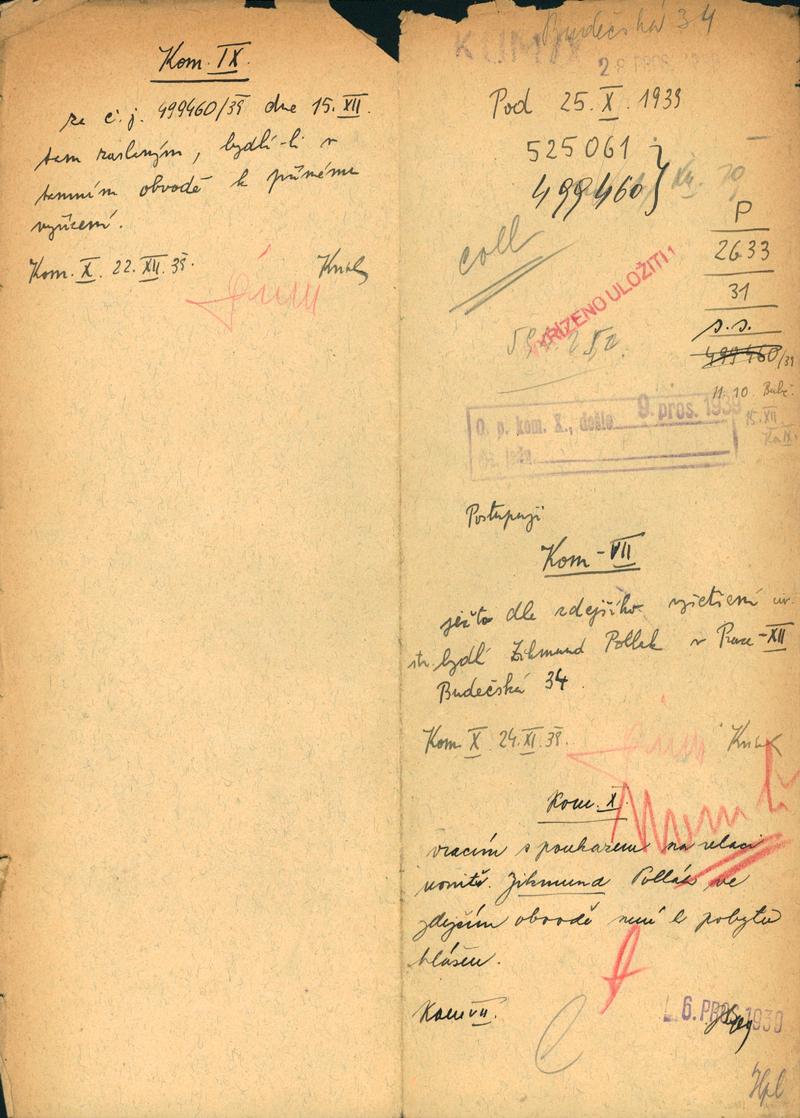 Kom. IX.
za č. j. 499460/39 dne 15. XII.
tam zaslaným, bydlí-li v
tamním obvodě k přímému
vyřízení.
Kom. X. 22. XII. 39.
Budečská 34
Pod 25. X. 1939
525061
499460
P
2633
31
s. s.
499460/39
coll
VYŘÍZENO ULOŽITI!
O. p. kom. X., došlo 9. pros. 1939
15. XII.
Postupuji
Kom - VII
ježto dle zdejšího
bydlí Zikmund Pollak v Praze - XII
Budečská 34.
Kom X 24. XI. 39.
Kom. X.
vracím s poukazem na relaci
uvnitř. Zikmund Pollák ve
zdejším obvodě není k pobytu
hlášen.
Kom VII.
6. PROS. 1939